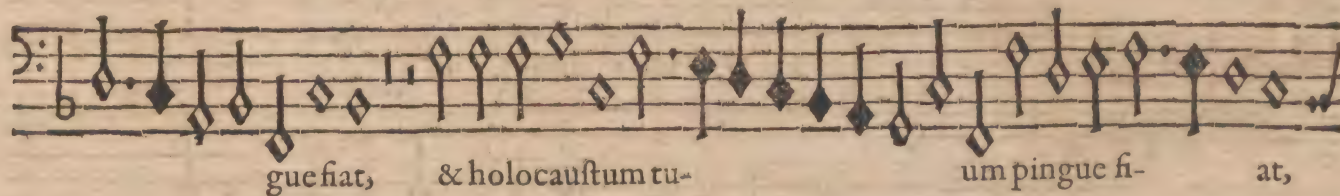 gue fiat, & holocauſtum tu- um pingue fi- at,